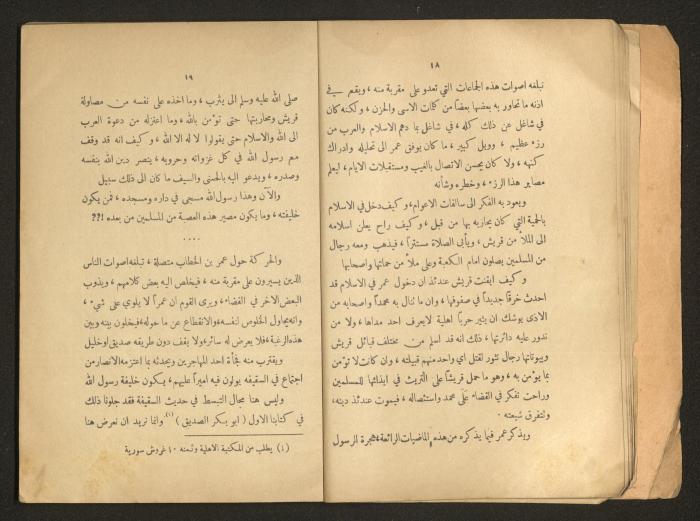 ١٨
تبلغه اصوات هذه الجماعات التي تعدو على مقربة منه ، ويقع في
اذنه ما تحاور به بعضها بعضاً من كلمات الاسى والحزن ، ولكنه كان
في شاغل عن ذلك كله ، في شاغل بما دهم الاسلام والعرب من
رزء عظيم ، وويل كبير ، ما كان يوفق عمر الى تحليله وادراك
كنهه ، ولا كان يحسن الاتصال بالغيب ومستقبلات الايام ، ليعلم
مصاير هذا الرزء ، وخطره وشأنه
ويعود به الفكر الى سالفات الاعوام ، وكيف دخل في الاسلام
بالحمية التي كان يحاربه بها من قبل ، وكيف راح يعلن اسلامه
الى الملأ من قريش ، ويأبى الصلاة مستتراً ، فيذهب ومعه رجال
من المسلمين يصلون امام الكعبة وعلى ملأ من حماتها واصحابها
وكيف ايقنت قريش عندئذ ان دخول عمر في الاسلام قد
احدث خرقاً جديداً في صفوفها ، وان ما تنال به محمداً واصحابه من
الاذى يوشك ان يثير حرباً اهلية لا يعرف احد مداها ، ولا من
تدور عليه دائرتها ، ذلك انه قد اسلم من مختلف قبائل قريش
وبيوتاتها رجال تثور لقتل اي واحد منهم قبيلته ، وان كانت لا تؤمن
بما يؤمن به ، وهو ما حمل قريشاً على التريث في ايذائها للمسلمين
وراحت تفكر في القضاء على محمد واستئصاله ، فيموت عندئذ دينه ،
وتتفرق شيعته .
ويذكر عمر فيما يذكره من هذه الماضيات الرائعة ، هجرة الرسول
١٩
صلى الله عليه وسلم الى يثرب ، وما اخذه على نفسه من مصاولة
قريش ومحاربتها حتى تؤمن بالله ، وما اعتزمه من دعوة العرب
الى الله والاسلام حتى يقولوا لا اله الا الله ، وكيف انه قد وقف
مع رسول الله في كل غزواته وحروبه ، ينصر دين الله بنفسه
وصدره ، ويدعو اليه بالحسنى والسيف ما كان الى ذلك سبيل
والآن وهذا رسول الله مسجى في داره ومسجده ، فمن يكون
خليفته ، وما يكون مصير هذه العصبة من المسلمين من بعده !??
....
والحركة حول عمر بن الخطاب متصلة ، تبلغه اصوات الناس
الذين يسيرون على مقربة منه ، فيخلص اليه بعض كلامهم ، ويذوب
البعض الآخر في الفضاء ، ويرى القوم ان عمراً لا يلوي على شيء ،
وانه يحاول الخلوص لنفسه ، والانقطاع عن ما حوله ، فيخلون بينه وبين
هذه الرغبة ، فلا يعرض له سائر ، ولا يقف دون طريقه صديق او خليل
ويقترب منه فجأة احد المهاجرين ويحدثه بما اعتزمه الانصار من
اجتماع في السقيفة يولون فيه اميراً عليهم ، يكون خليفة رسول الله
وليس هنا مجال التبسط في حديث السقيفة فقد جلونا ذلك
في كتابنا الاول ( ابو بكر الصديق ) (١) وانما نريد ان نعرض هنا
(١) يطلب من المكتبة الاهلية وثمنه ١٠ غروش سورية